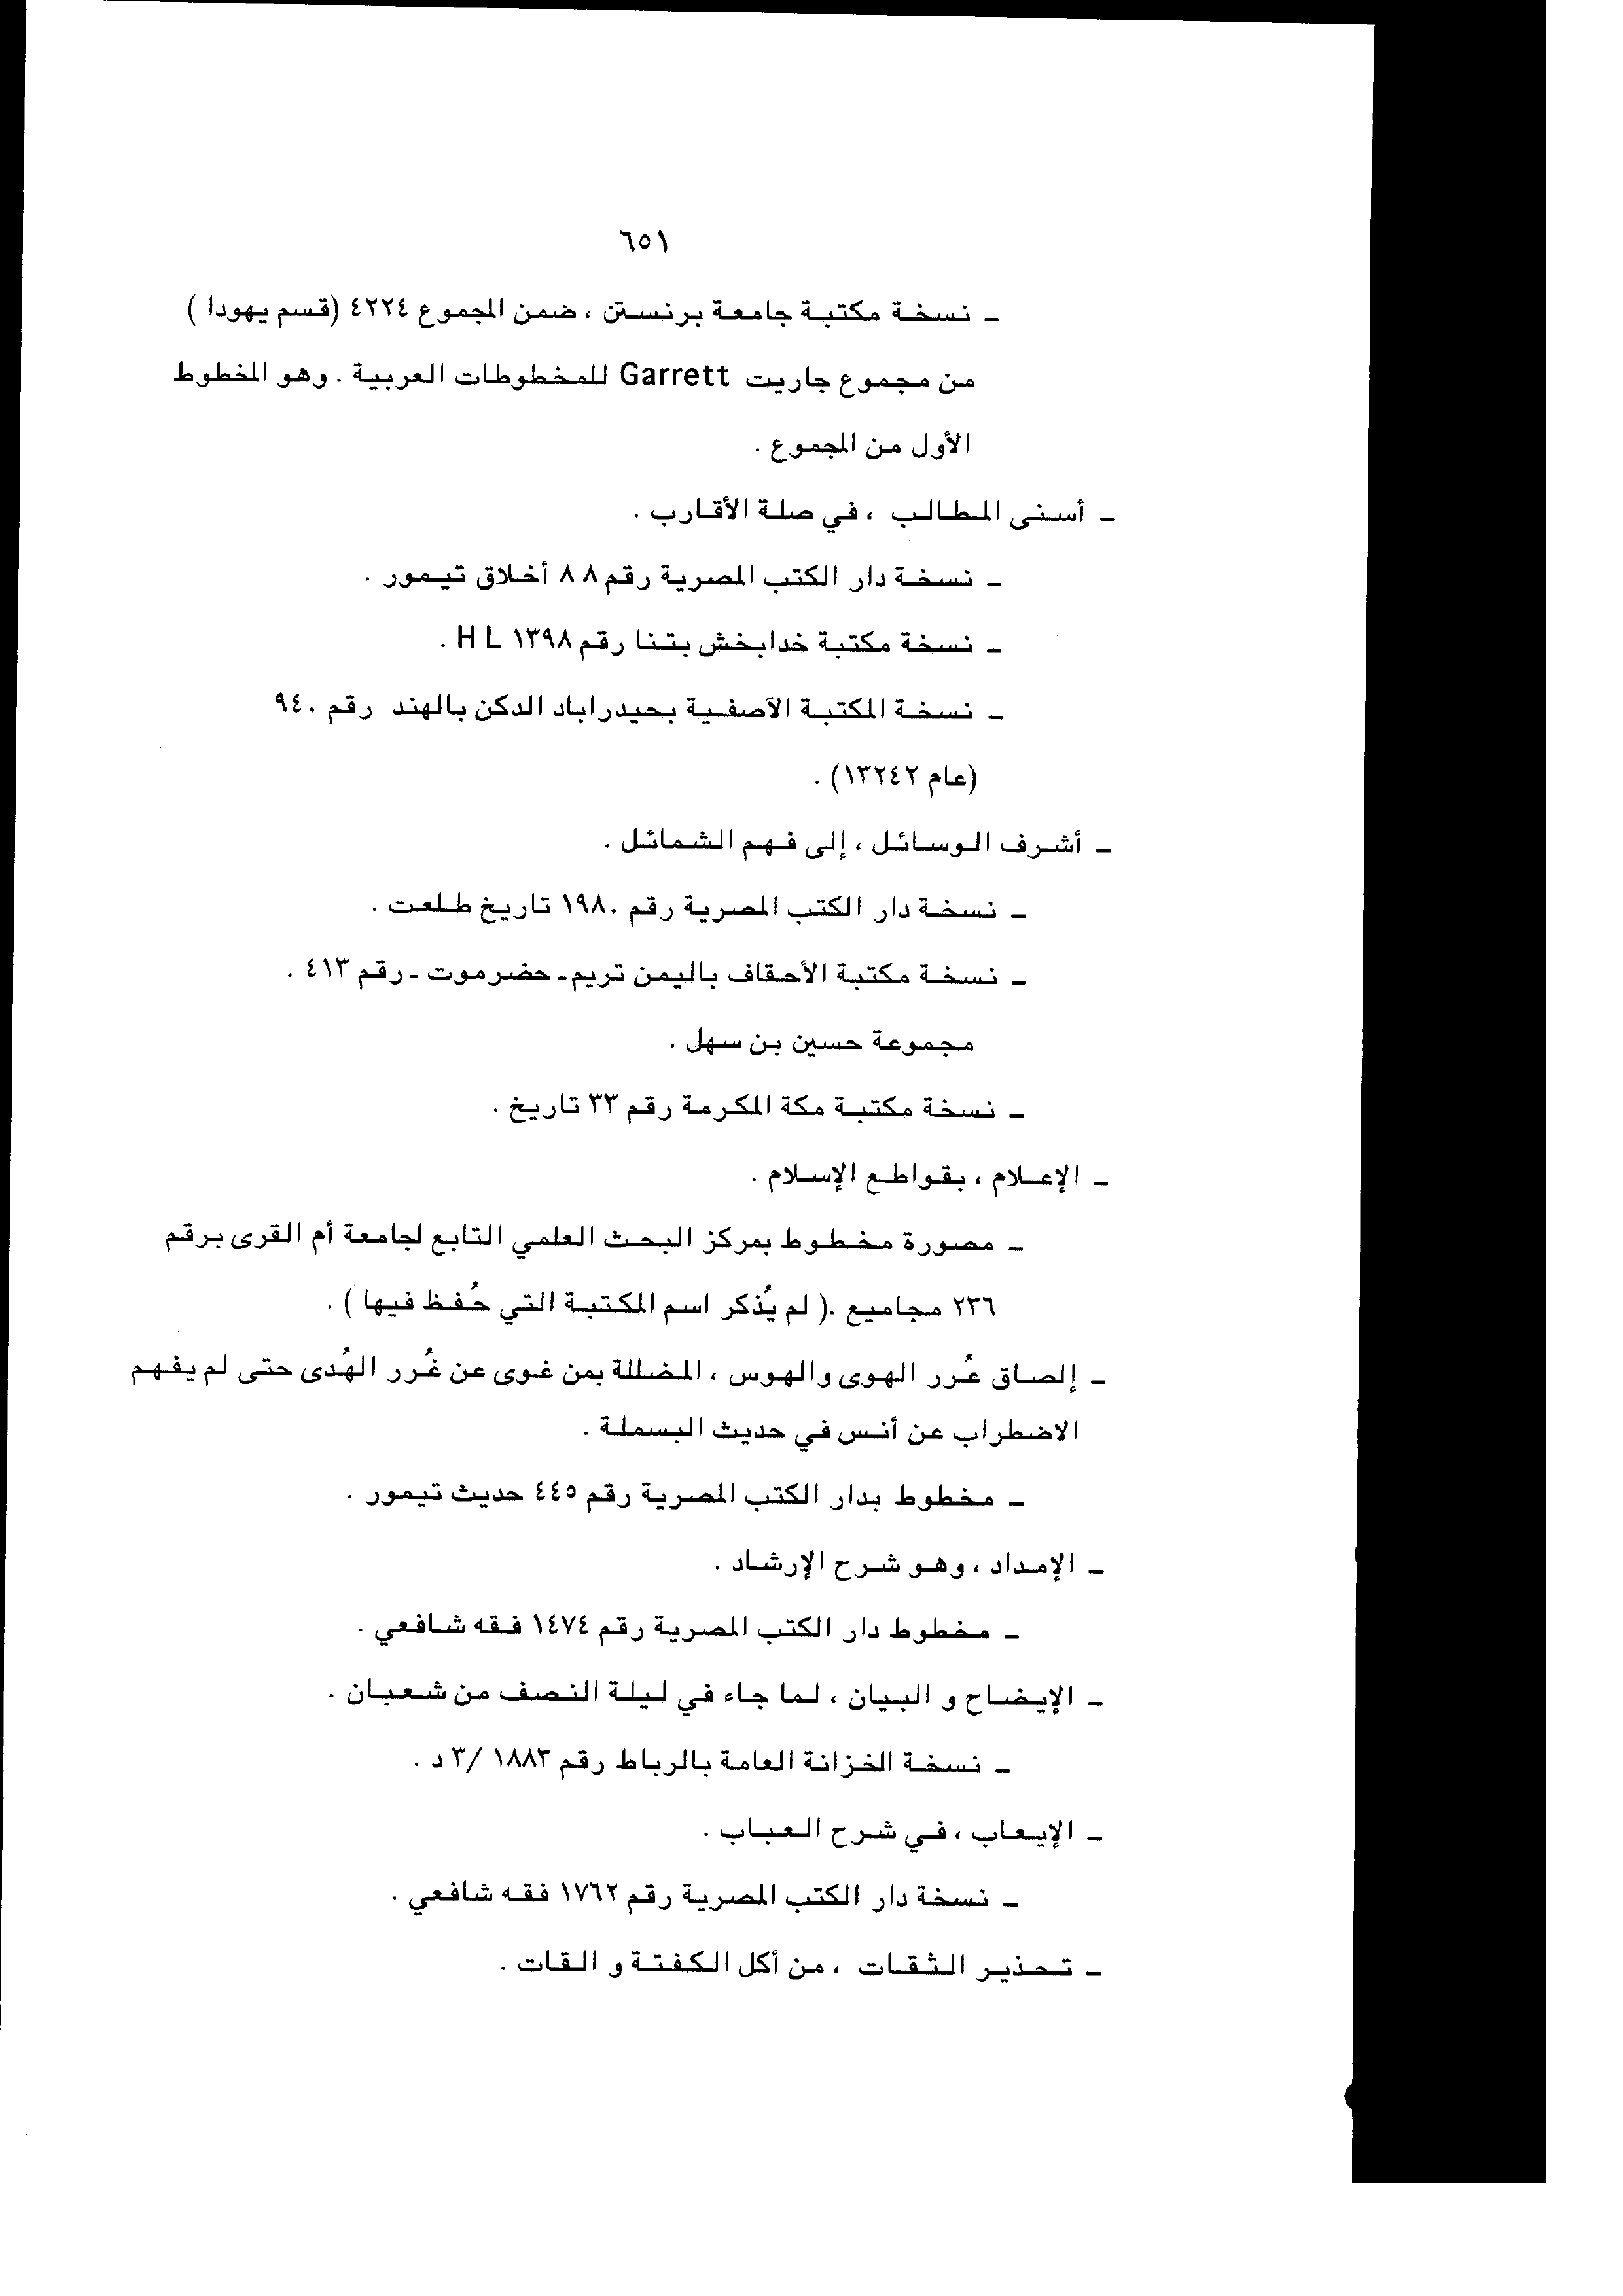 ٦٥١
ـ نسخة مكتبة جامعة برنستن ، ضمن المجموع ٤٢٢٤ (قسم يهودا )
من مجموع جاريت Garrett للمخطوطات العربية . وهو المخطوط
الأول من المجموع .
ـ أسنى المطالب ، في صلة الأقارب .
ـ نسخة دار الكتب المصرية رقم ٨٨ أخلاق تيمور .
ـ نسخة مكتبة خدابخش بتنا رقم ١٣٩٨ H L .
ـ نسخة المكتبة الآصفية بحيدراباد الدكن بالهند رقم ٩٤٠
(عام ١٣٢٤٢) .
ـ أشرف الوسائل ، إلى فهم الشمائل .
ـ نسخة دار الكتب المصرية رقم ١٩٨٠ تاريخ طلعت .
ـ نسخة مكتبة الأحقاف باليمن تريم ـ حضرموت ـ رقم ٤١٣ .
مجموعة حسين بن سهل .
ـ نسخة مكتبة مكة المكرمة رقم ٣٣ تاريخ .
ـ الإعلام ، بقواطع الإسلام .
ـ مصورة مخطوط بمركز البحث العلمي التابع لجامعة أم القرى برقم
٢٣٦ مجاميع .( لم يُذكر اسم المكتبة التي حُفظ فيها ) .
ـ إلصاق عُرر الهوى والهوس ، المضللة بمن غوى عن غُرر الهُدى حتى لم يفهم
الاضطراب عن أنس في حديث البسملة .
ـ مخطوط بدار الكتب المصرية رقم ٤٤٥ حديث تيمور .
ـ الإمداد ، وهو شرح الإرشاد .
ـ مخطوط دار الكتب المصرية رقم ١٤٧٤ فقه شافعي .
ـ الإيضاح و البيان ، لما جاء في ليلة النصف من شعبان .
ـ نسخة الخزانة العامة بالرباط رقم ١٨٨٣ /٣ د .
ـ الإيعاب ، في شرح العباب .
ـ نسخة دار الكتب المصرية رقم ١٧٦٢ فقه شافعي .
ـ تحذير الثقات ، من أكل الكفتة و القات .